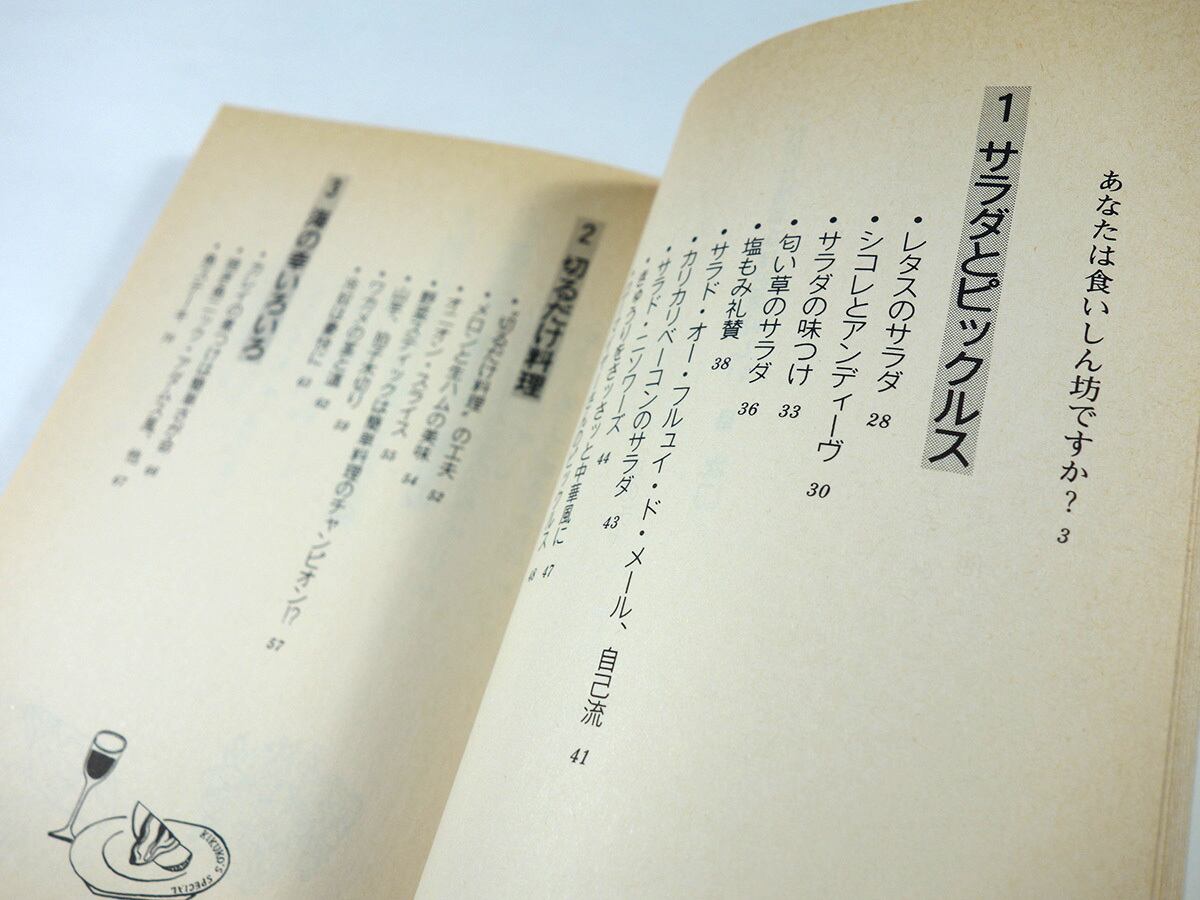 あなたは食いしん坊ですか? 3
1 サラダとピックルス
・レタスのサラダ 28
・シコレとアンディーヴ 30
・サラダの味つけ 33
・匂い草のサラダ 36
・塩もみ礼賛 38
・サラド・オー・フルュイ・ド・メール、自己流 41
・カリカリベーコンのサラダ 43
・サラド・ニソワーズ 44
・きゅうりをさッさッと中華風に 47
ピックルス 48
2 切るだけ料理
・"切るだけ料理"の工夫 52
・メロンと生ハムの美味 54
・オニオン・スライス 55
・野菜スティックは簡単料理のチャンピオン!? 57
拍子木切り
3 海の幸いろいろ
67
KIKUKO'S SPECIAL